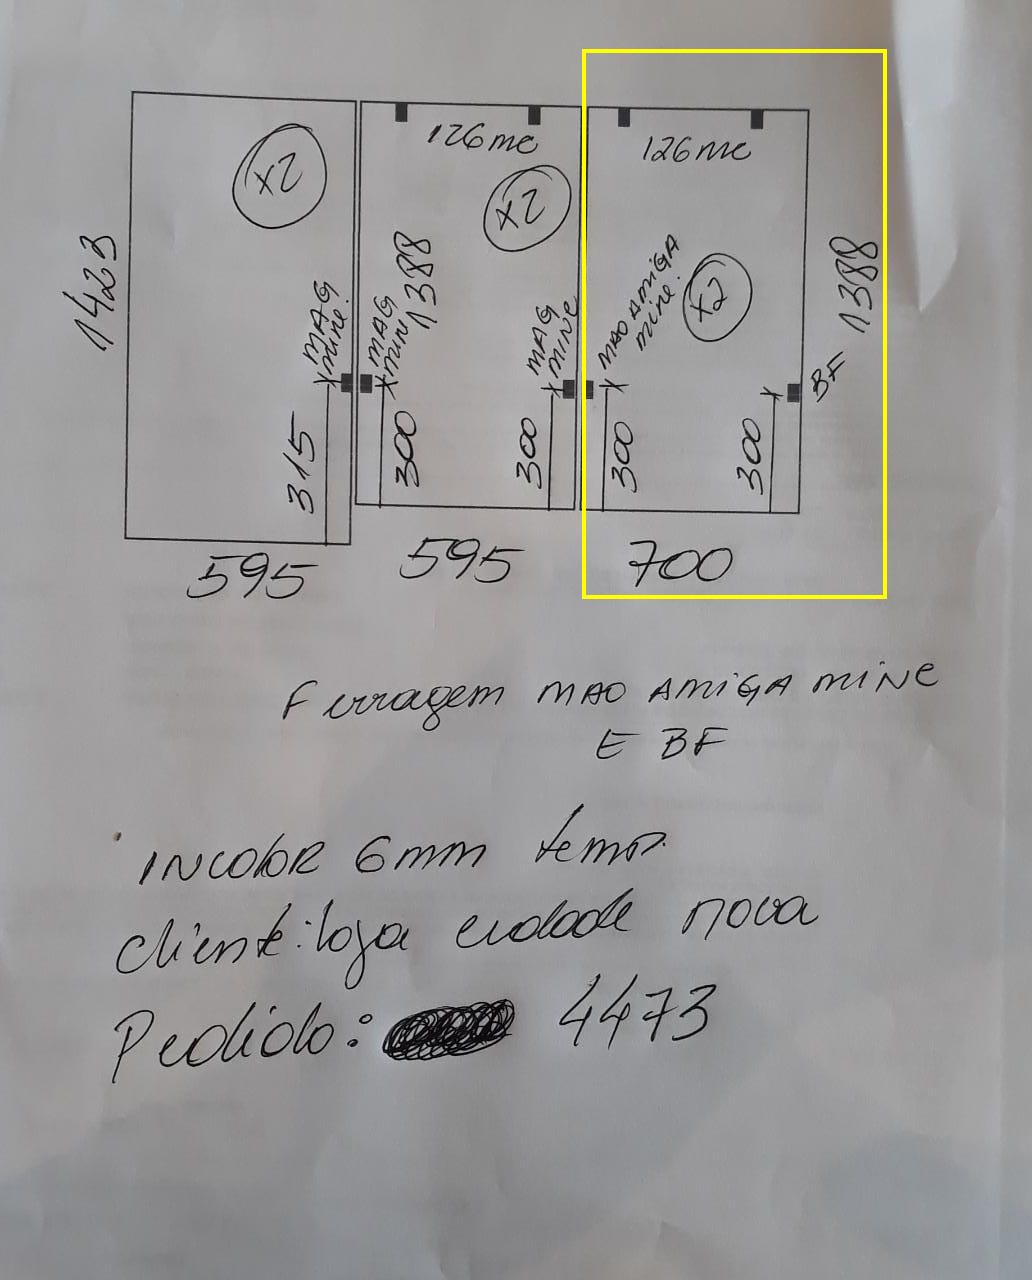 126mc
126mc
X2
X2
X2
1423
1388
1388
MAG
mine.
MAG
mini
MAG
MINE
MAO AMIGA
mine.
BF
315
300
300
300
300
595
595
700
Ferragem MAO AMIGA MINE
E BF
INCOLOR 6mm temp.
cliente: loja cidade nova
Pedido: 4473